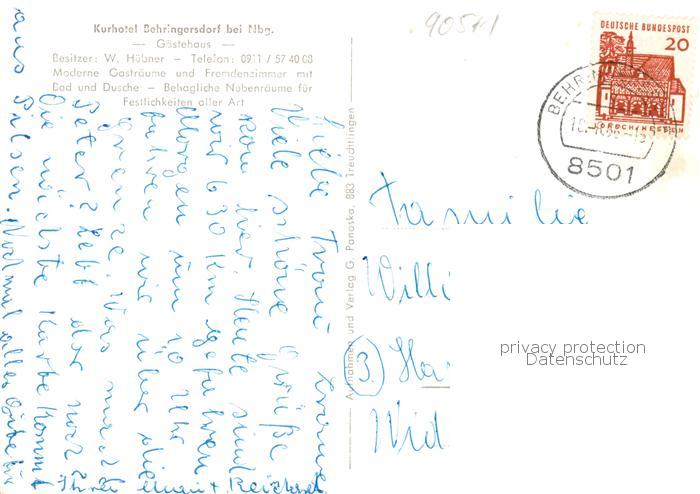 Kurhotel Behringersdorf bei Nbg.
— Gästehaus —
Besitzer: W. Hübner – Telefon: 0911 / 57 40 08
Moderne Gasträume und Fremdenzimmer mit
Bad und Dusche – Behagliche Nebenräume für
Festlichkeiten aller Art
90541
DEUTSCHE BUNDESPOST
20
8501
Aufnahmen und Verlag G. Panaska, 883 Treuchtlingen
Liebe Frau
Viele schöne Grüße
von hier. Heute sind
wir 630 km gefahren
Morgen um 10 Uhr
fahren wir über die
Grenze. Was macht
Peter? Lebt der noch?
Die nächste Karte kommt
aus Pilsen. Nochmal alles Gute
Familie
Willi
3
Wid
privacy protection
Datenschutz